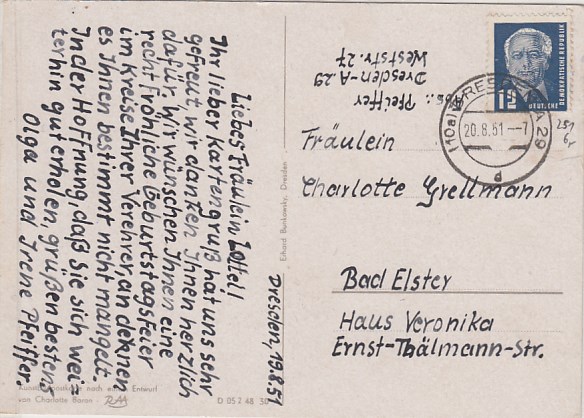 Dresden, 19.8.51
Liebes Fräulein Lottel!
Ihr lieber Kartengruß hat uns sehr
gefreut, wir danken Ihnen herzlich
dafür. Wir wünschen Ihnen eine
recht fröhliche Geburtstagsfeier
im Kreise Ihrer Verehrer, an denen
es Ihnen bestimmt nicht mangelt.
In der Hoffnung, daß Sie sich wei=
terhin gut erholen, grüßen bestens
Olga und Irene Pfeiffer.
nach einem Entwurf
von Charlotte Baron
D 05 2 48
Erhard Bunkowsky, Dresden
Abs.: Pfeiffer
Dresden-A 29
Weststr. 27
DEUTSCHE DEMOKRATISCHE REPUBLIK
(10a) DRESDEN A 29
20.8.51 -7
d
251
Fräulein
Charlotte Grellmann
Bad Elster
Haus Veronika
Ernst-Thälmann-Str.